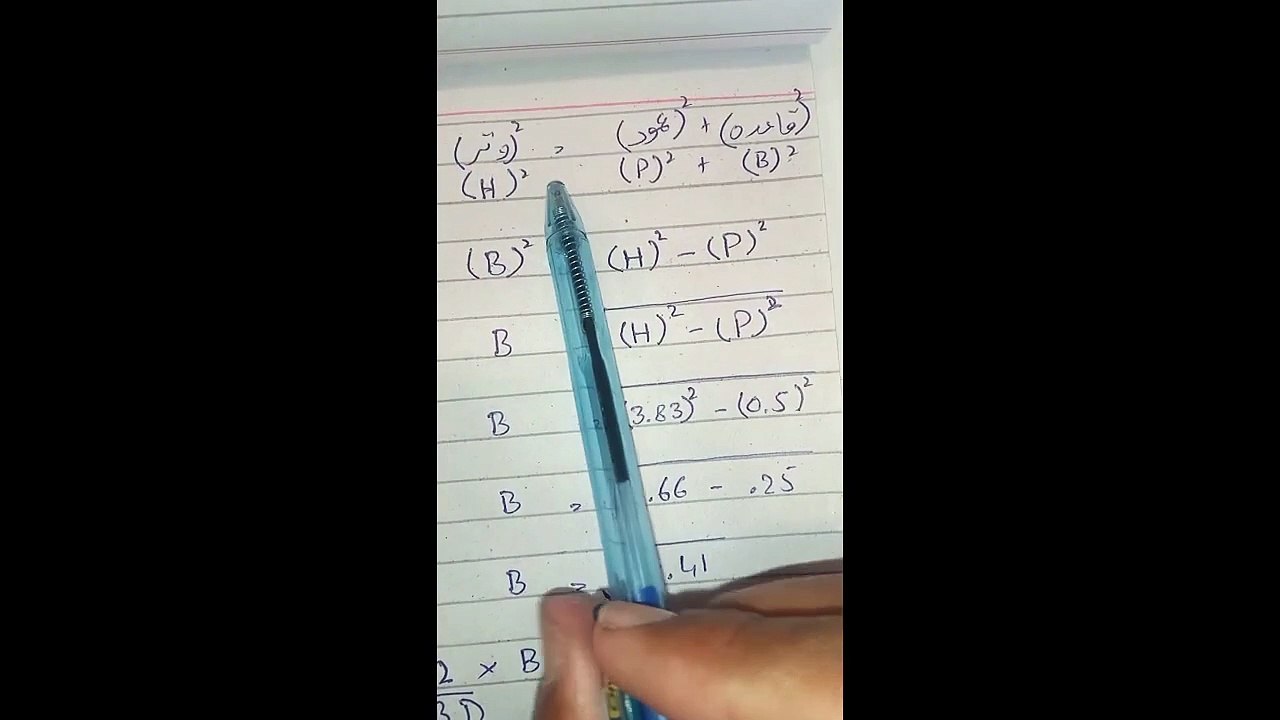 (وتر)² = (عمود)² + (قاعدہ)²
(H)² (P)² + (B)²
(B)² (H)² - (P)²
B (H)² - (P)²
B = (3.83)² - (0.5)²
B = .66 - .25
B = .41
2 × B